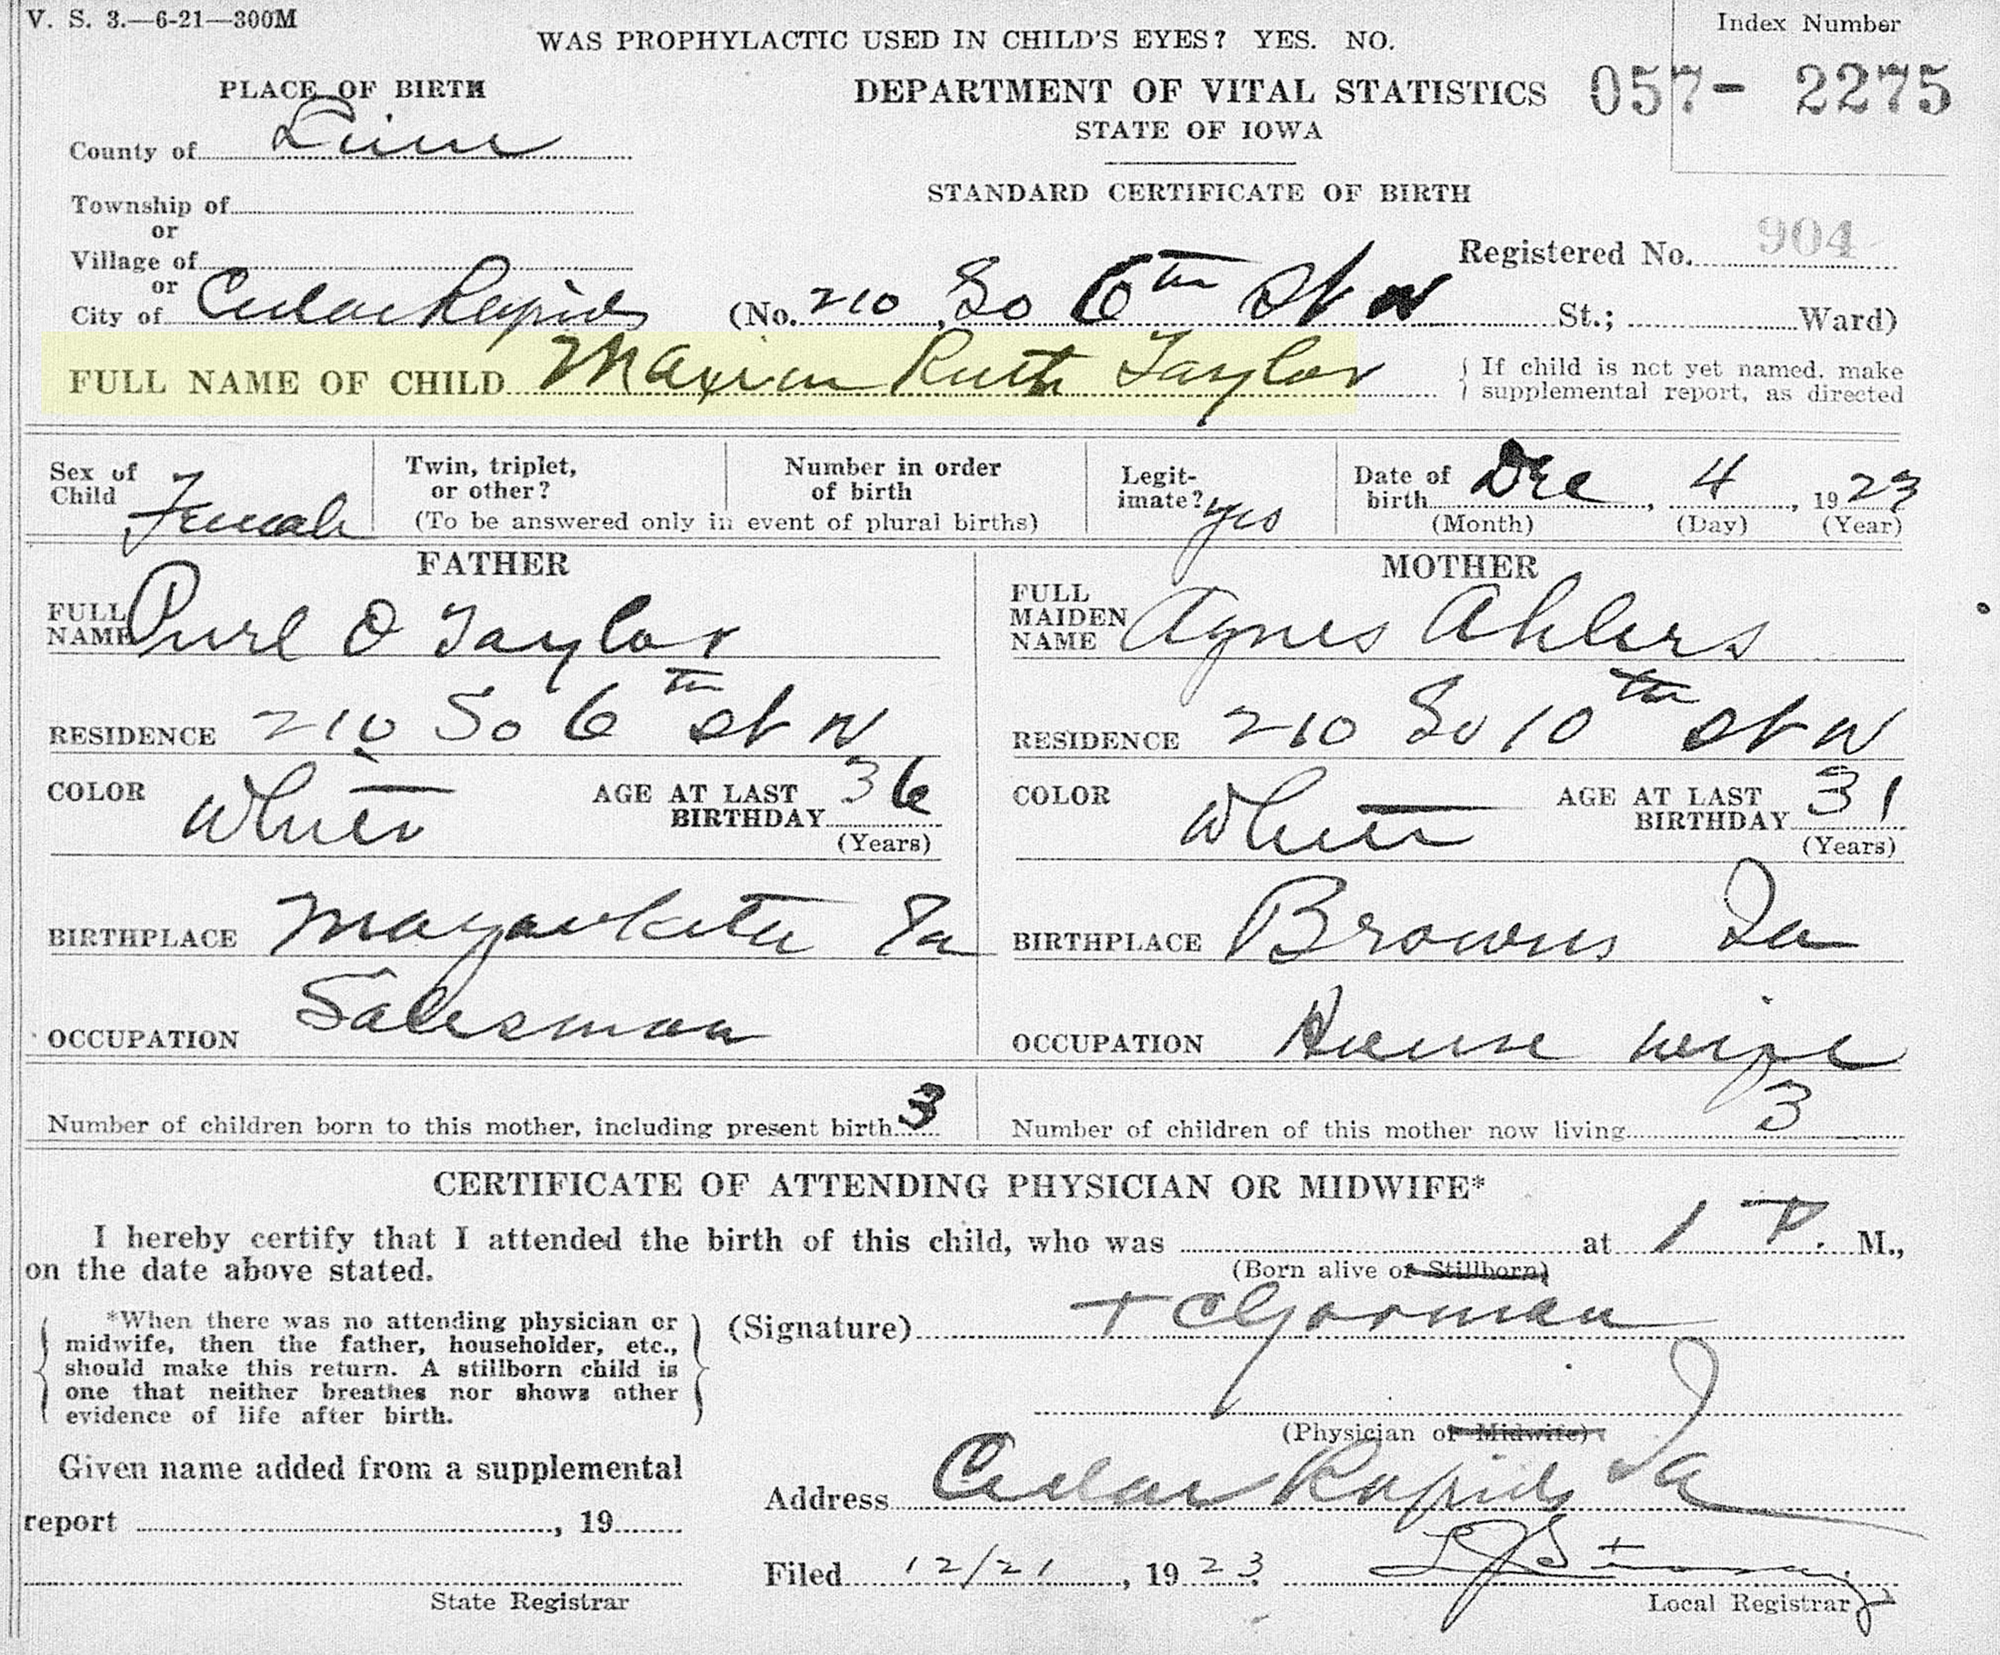 V. S. 3.—6-21—300M
WAS PROPHYLACTIC USED IN CHILD'S EYES? YES. NO.
Index Number
057- 2275
PLACE OF BIRTH
DEPARTMENT OF VITAL STATISTICS
STATE OF IOWA
County of Linn
STANDARD CERTIFICATE OF BIRTH
Township of
or
Village of
or
Registered No. 904
City of Cedar Rapids (No. 210 So 6th St W St.; Ward)
FULL NAME OF CHILD Maxine Ruth Taylor
{ If child is not yet named. make
supplemental report, as directed
Sex of Child Female
Twin, triplet, or other?
Number in order of birth
(To be answered only in event of plural births)
Legit-imate? yes
Date of birth Dec, 4, 1923
(Month) (Day) (Year)
FATHER
FULL NAME Purl O Taylor
RESIDENCE 210 So 6th St W
COLOR White AGE AT LAST BIRTHDAY 36
(Years)
BIRTHPLACE Ia
OCCUPATION Salesman
MOTHER
FULL MAIDEN NAME Agnes Ahlers
RESIDENCE 210 So 10th St W
COLOR White AGE AT LAST BIRTHDAY 31
(Years)
BIRTHPLACE Browns Ia
OCCUPATION House wife
Number of children born to this mother, including present birth 3
Number of children of this mother now living 3
CERTIFICATE OF ATTENDING PHYSICIAN OR MIDWIFE*
I hereby certify that I attended the birth of this child, who was at 1 P. M.,
(Born alive or Stillborn)
on the date above stated.
{ *When there was no attending physician or
midwife, then the father, householder, etc.,
should make this return. A stillborn child is
one that neither breathes nor shows other
evidence of life after birth. }
(Signature) Gorman
(Physician or Midwife)
Address Cedar Rapids Ia
Given name added from a supplemental
report , 19
State Registrar
Filed 12/21, 1923
Local Registrar